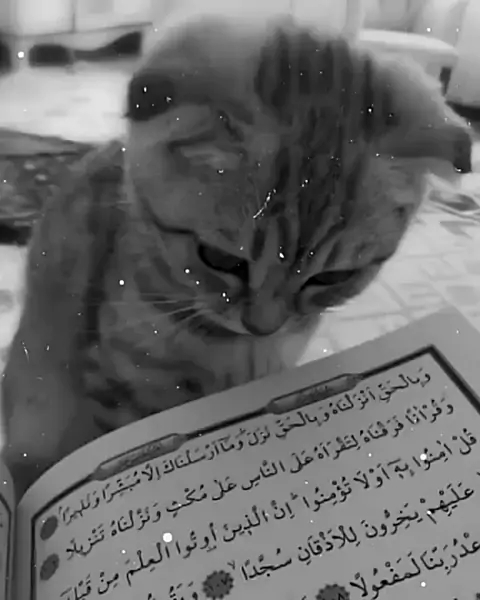 وَبِالْحَقِّ اَنْزَلْنَاهُ وَبِالْحَقِّ نَزَلَ وَمَٓا اَرْسَلْنَاكَ اِلَّا مُبَشِّرًا وَنَذِيرًا
وَقُرْاٰنًا فَرَقْنَاهُ لِتَقْرَاَهُ عَلَى النَّاسِ عَلٰى مُكْثٍ وَنَزَّلْنَاهُ تَنْزِيلًا
قُلْ اٰمِنُوا بِهِٓ اَوْ لَا تُؤْمِنُوا اِنَّ الَّذِينَ اُوتُوا الْعِلْمَ مِنْ قَبْلِهِٓ
عَلَيْهِمْ يَخِرُّونَ لِلْاَذْقَانِ سُجَّدًا وَيَقُو
وَعْدُ رَبِّنَا لَمَفْعُولًا